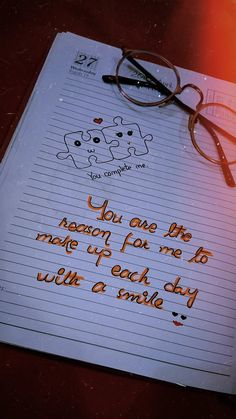 27
Wednesday
You complete me.
You are the
reason for me to
make up each day
with a smile